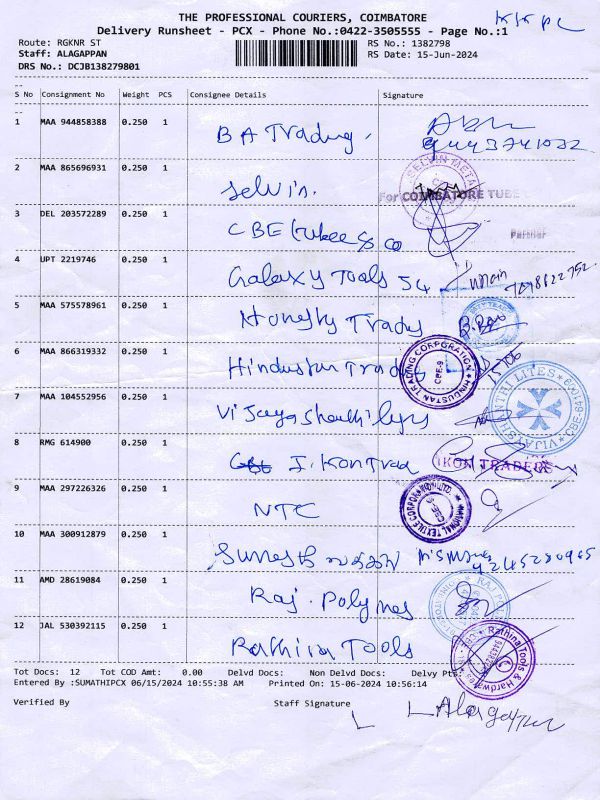 THE PROFESSIONAL COURIERS, COIMBATORE
KKPC
Delivery Runsheet - PCX - Phone No.:0422-3505555 - Page No.:1
Route: RGKNR ST RS No.: 1382798
Staff: ALAGAPPAN RS Date: 15-Jun-2024
DRS No.: DCJB138279801
S No Consignment No Weight PCS Consignee Details Signature
1 MAA 944858388 0.250 1 B A Trading.
2 MAA 865696931 0.250 1 Selvin. SELVIN METAL
For COIMBATORE TUBE
3 DEL 203572289 0.250 1 CBE tubees co Partner
4 UPT 2219746 0.250 1 Galaxy Tools 54
5 MAA 575578961 0.250 1 Honesty Trades
6 MAA 866319332 0.250 1 Hindustan Trades HINDUSTAN TRADING CORPORATION CBE-9
7 MAA 104552956 0.250 1 Vijayashanthi lites VIJAYSHANTHI LITES
8 RMG 614900 0.250 1 I. Kon Trad IKON TRADERS
9 MAA 297226326 0.250 1 NTC NATIONAL TEXTILE CORPORATION
10 MAA 300912879 0.250 1 Suresh 9245280965
11 AMD 28619084 0.250 1 Raj. Polymes RAJ
12 JAL 530392115 0.250 1 Rathina Tools Rathina Tools & Hardwares
Tot Docs: 12 Tot COD Amt: 0.00 Delvd Docs: Non Delvd Docs: Delvy Pts:
Entered By :SUMATHIPCX 06/15/2024 10:55:38 AM Printed On: 15-06-2024 10:56:14
Verified By Staff Signature Alagappan